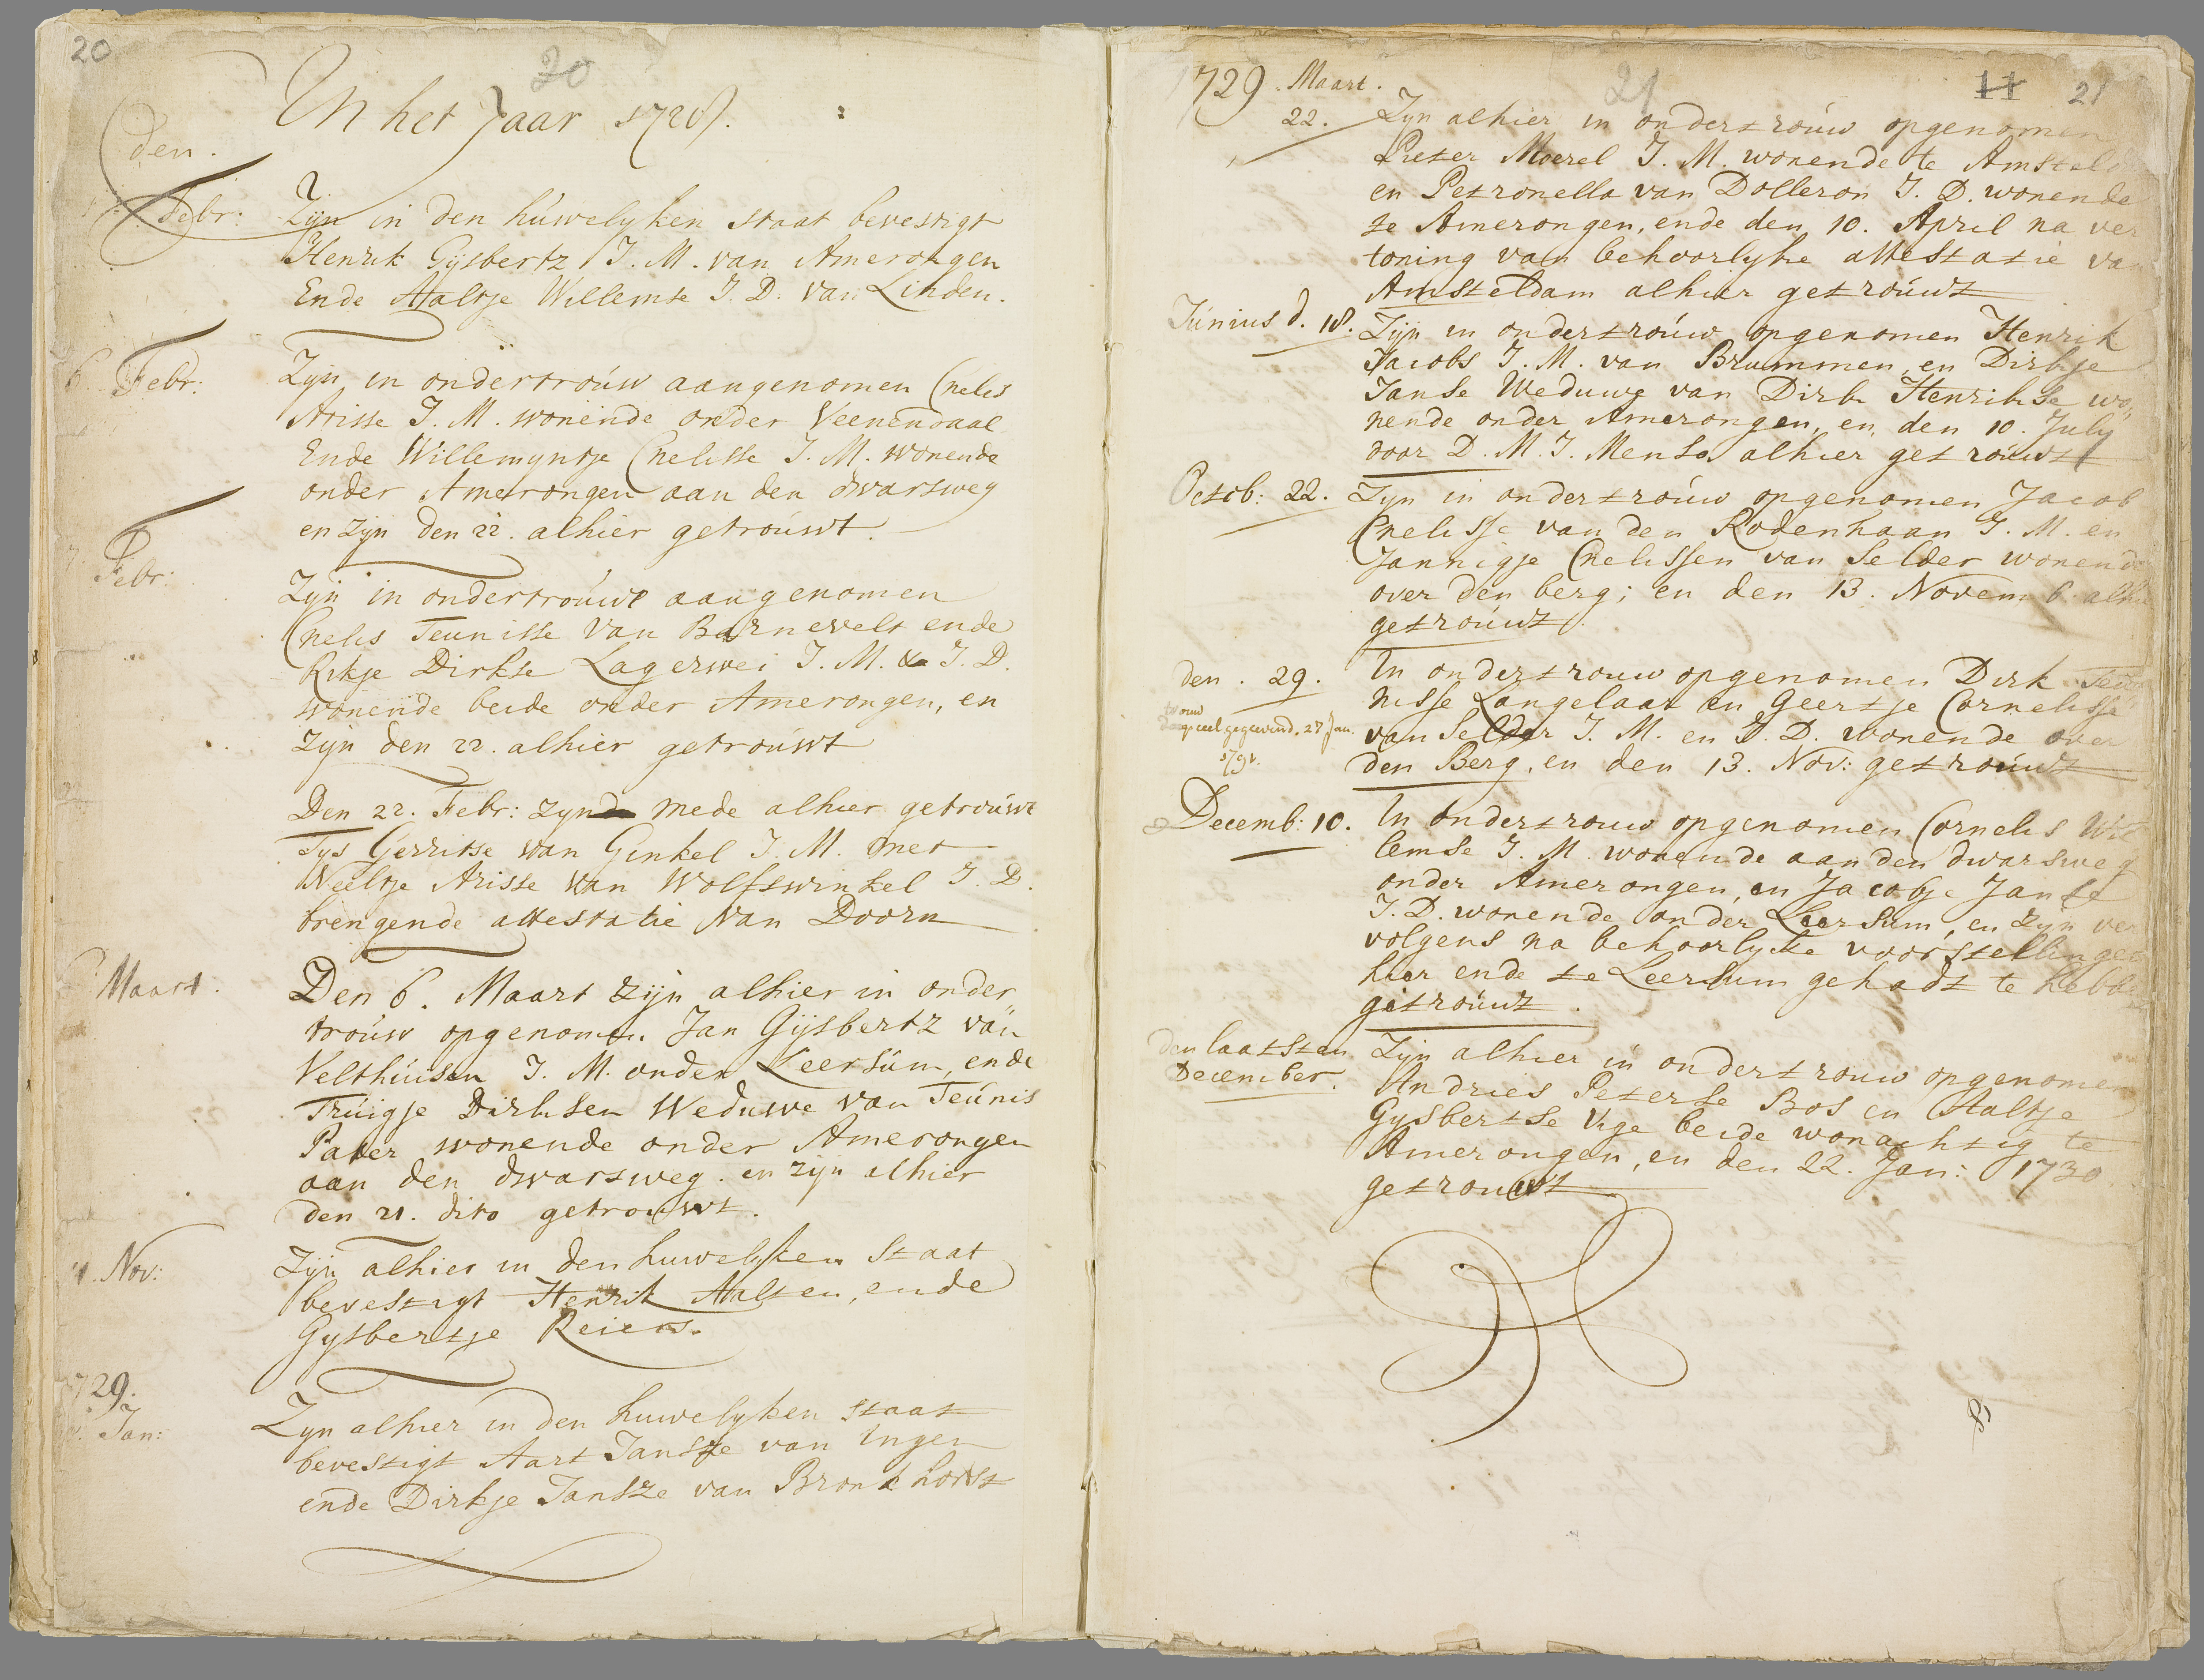 20
20
In het Jaar 1728.
den.
Febr: Zijn in den húwelyken staat bevestigt
Henrik Gijsbertz J. M. van Amerongen
Ende Aaltje Willemse J. D. van Linden.
6 Febr: Zijn in ondertroúw aangenomen Cnelis
Arisse J. M. wonende onder Veenendaal
Ende Willemyntje Cnelisse J. M. wonende
onder Amerongen aan den dwarsweg
en zyn den 22. alhier getroúwt.
7. Febr: Zijn in ondertroúwe aangenomen
Cnelis Teunisse van Barnevelt ende
Rikje Dirkse Lagerwei J. M. & J. D.
wonende beide onder Amerongen, en
zyn den 22. alhier getroúwt
Den 22. Febr: zyn mede alhier getroúwt
Tys Gerritse van Ginkel J. M. met
Neeltje Arisse van Wolfswinkel J. D.
brengende attestatie van Doorn
Maart. Den 6. Maart zijn alhier in onder„
troúw opgenomen Jan Gijsbertz van
Velthúisen J. M. onder Leersúm, ende
Trúigje Dirksen Weduwe van Teúnis
Pater wonende onder Amerongen
aan den dwarsweg. en zijn alhier
den 21. dito getrouwt.
Nov: Zijn alhier in den huwelyken Staat
bevestigt Henrik Aalten, ende
Gysbertje Reiers.
1729.
Jan: Zyn alhier in den huwelyken staat
bevestigt Aart Jansze van Ingen
ende Dirkje Jansze van Bronkhorst
1729. Maart. 21 11 21
22. Zyn alhier in ondertroúw opgenomen
Pieter Moerel J. M. wonende te Amsteld
en Petronella van Dolleron J. D. wonende
te Amerongen, ende den 10. April na ver
toning van behoorlyke attestatie van
Amsteldam alhier getroúwt
Június d. 18. Zijn in ondertroúw opgenomen Henrik
Jacobs J. M. van Brummen, en Dirkje
Janse Weduwe van Dirk Henrikse wo„
nende onder Amerongen, en den 10. July
door D. M. J. Mensa alhier getroúwt
Octob: 22. Zyn in ondertroúw opgenomen Jacob
Cnelisse van den Rodenhaan J. M. en
Jannigje Cnelissen van Selder wonende
over den berg; en den 13. Novemb. alhier
getroúwt.
den. 29. In ondertrouw opgenomen Dirk Teu
nisse Langelaar en Geertje Cornelisse
trouw
gegeven d. 27 Jan.
1791.
van Selder J. M. en J. D. wonende over
den Berg, en den 13. Nov: getroúwt
Decemb: 10. In ondertrouw opgenomen Cornelis Wil
lemse J. M. wonende aan den dwarsweg
onder Amerongen, en Jacobje Janse
J. D. wonende onder Leersum, en zyn ver
volgens na behoorlyke voorstellingen
hier ende te Leersum gehadt te hebben
getroúwt.
den laatsten
December. Zyn alhier in ondertrouw opgenomen
Andries Peterse Bos en Aaltje
Gysbertse Vige beide wonachtig te
Amerongen, en den 22. Jan: 1730
getrouwt